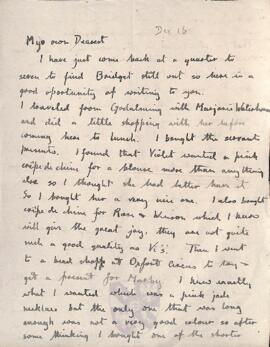 Dec 16
My own Dearest
I have just come back at a quarter to
seven to find Bridget still out so here is a
good opportunity of writing to you.
I traveled from Godalming with Marjorie Waterhouse
and did a little shopping with her before
coming here to lunch. I bought the servants
presents. I found that Violet wanted a pink
crêpe de chine for a blouse more than anything
else so I thought she had better have it
So I bought her a very nice one. I also bought
crêpe de chine for Rose & which I know
will give them great joy. They are not quite
such a good quality as V's! Then I went
to a bead shop at Oxford Circus to try &
get a present for I knew exactly
what I wanted which was a pink jade
necklace but the only one that was long
enough was not a very good colour so after
some thinking I bought one of the shorter